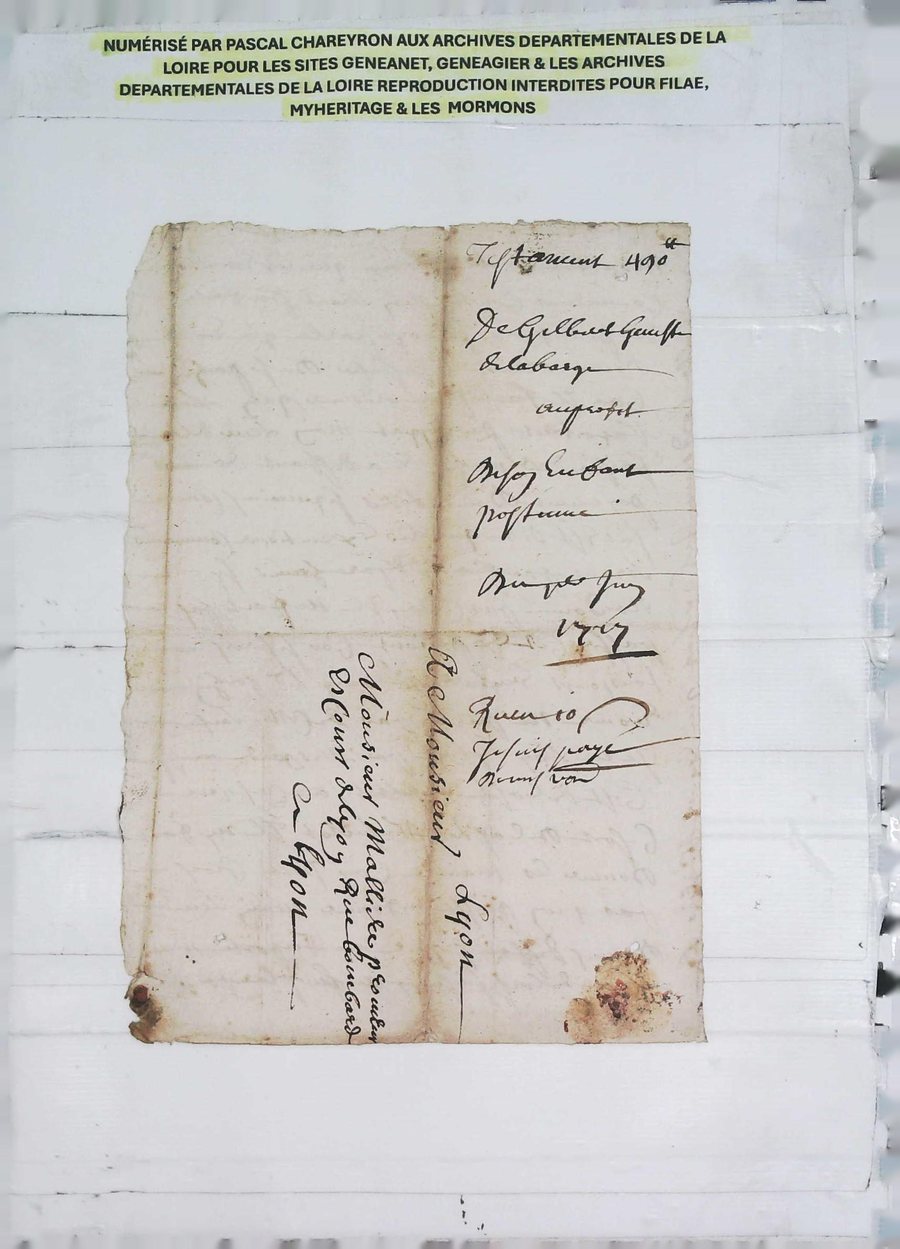 NUMÉRISÉ PAR PASCAL CHAREYRON AUX ARCHIVES DEPARTEMENTALES DE LA
LOIRE POUR LES SITES GENEANET, GENEAGIER & LES ARCHIVES
DEPARTEMENTALES DE LA LOIRE REPRODUCTION INTERDITES POUR FILAE,
MYHERITAGE & LES MORMONS
Testament 490
De Gilbert
delabarge
au profit
de son Enfant
postume
1717
Jesuis paye
A Monsieur Lyon
Monsieur Mallide procureur
es Cours de Lyon Rue bombarde
a Lyon